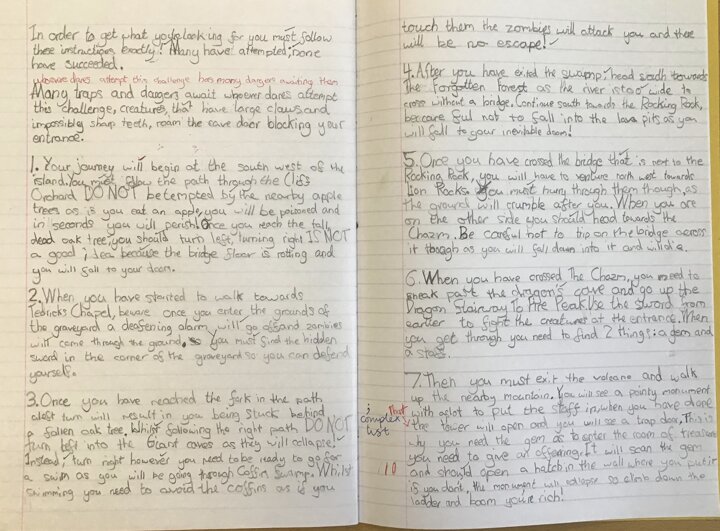 In order to get what you're looking for you must follow
these instructions exactly! Many have attempted; none
have succeeded.
whoever dares attempt this challenge has many dangers awaiting them
Many traps and dangers await whoever dares attempt
this challenge, creatures, that have large claws and
impossibly sharp teeth, roam the cave door blocking your
entrance.
1. Your journey will begin at the south west of the
island. You must follow the path through the Cliff
Orchard DO NOT be tempted by the nearby apple
trees as is you eat an apple, you will be poisoned and
in seconds you will perish! Once you reach the tall,
dead oak tree, you should turn left, turning right IS NOT
a good idea because the bridge floor is rotting and
you will fall to your doom.
2. When you have started to walk towards
Tedricks Chapel, beware once you enter the grounds of
the graveyard a deafening alarm will go off and zombies
will come through the ground. so you must find the hidden
sword in the corner of the graveyard so you can defend
yourself.
3. Once you have reached the fork in the path
a left turn will result in you being stuck behind
a fallen oak tree. Whilst following the right path DO NOT
turn left into the Giant caves as they will collapse!
Instead, turn right however you need to be ready to go for
a swim as you will be going through Coffin Swamp. Whilst
swimming you need to avoid the coffins as if you
touch them the zombies will attack you and there
will be no escape!
4. After you have exited the swamp, head south towards
the forgotten forest as the river is too wide to
cross without a bridge. Continue south towards the Rocking Rook,
be careful not to fall into the lava pits as you
will fall to your inevitable doom!
5. Once you have crossed the bridge that is next to the
Rocking Rook, you will have to venture north west towards
Lion Rocks. You must hurry through them though, as
the ground will crumple after you. When you are
on the other side you should head towards the
Chazm. Be careful not to trip on the bridge across
it though as you will fall down into it and will die.
6. When you have crossed The Chazm, you need to
sneak past the dragon's cave and go up the
Dragon Stairway To Fire Peak. Use the sword from
earlier to fight the creatures at the entrance. When
you get through you need to find 2 things: a gem and
a staff.
7. Then you must exit the volcano and walk
up the nearby mountain. You will see a pointy monument
; That with a slot to put the staff in, when you have done
complex the tower will open and you will see a trap door. This is
list why you need the gem as to enter the room of treasure
you need to give an offering. It will scan the gem
110 and should open a hatch in the wall where you put it
if you don't, the monument will collapse so climb down the
ladder and boom you're rich!